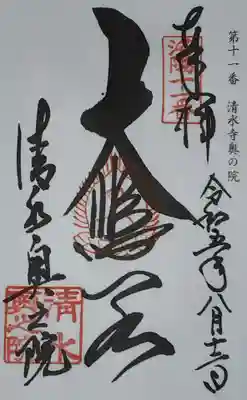 第十一番 清水寺奥の院
奉拝
洛陽十一番
令和五年八月
大悲閣
清水奥之院
清水
奥之院